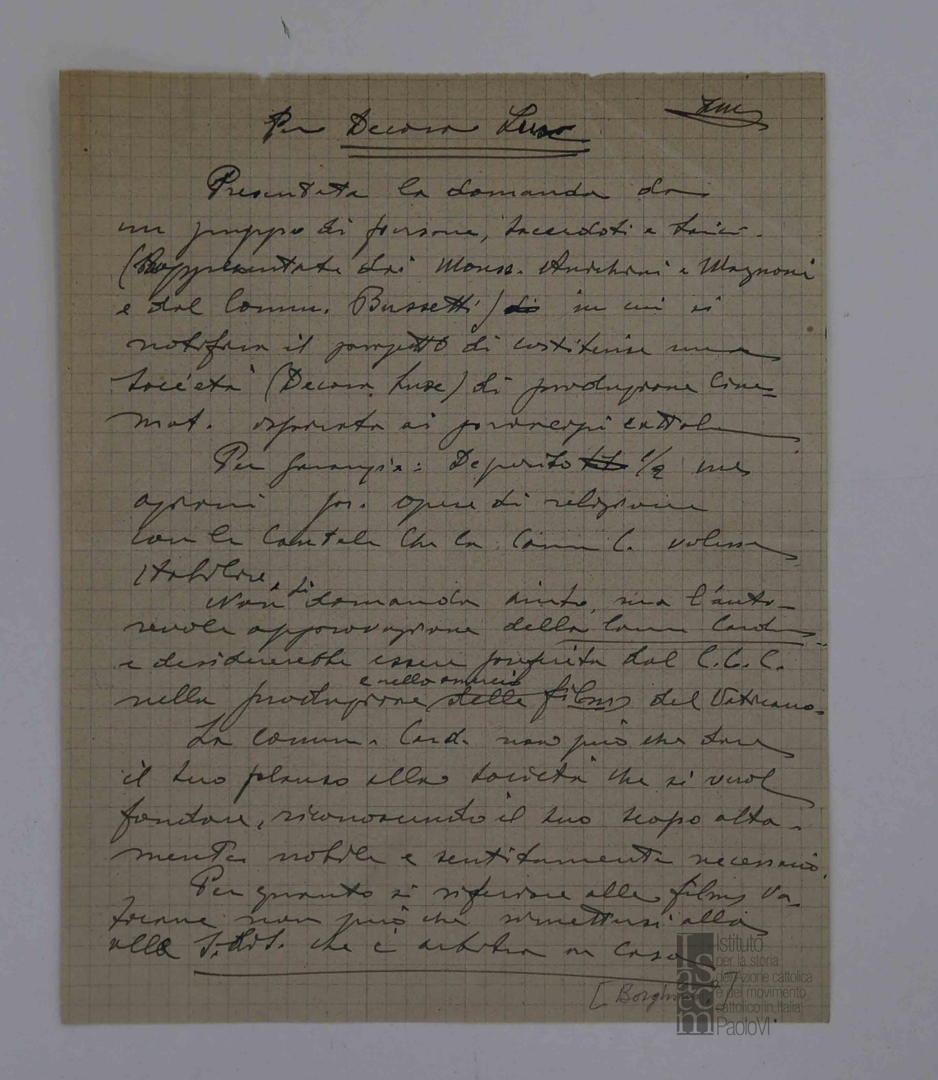 Per Decora Luxe
Presentata la domanda da
un gruppo di persone, sacerdoti e laici.
(Rappresentate dai Mons. Anichini e Magnoni
e dal Comm. Bussetti) in cui si
notifica il progetto di costituire una
società (Decora Luxe) di produzione cine=
mat. ispirata ai principi cattol
Per garanzia: Deposito 1/2 me
azioni opere di religione
con le cautele che la Comm C. volesse
stabilire.
Non si domanda aiuto, ma l'auto-
revole approvazione della Comm Card
e desidererebbe essere preferita dal C.C.C.
e nello smercio
nella produzione delle films del Vaticano.
La comm. Card. non può che dare
il suo plauso alla società che si vuol
fondare, riconoscendo il suo scopo alta-
mente nobile e sentitamente necessario.
Per quanto si riferisce alle films va-
ticane non può che rimettersi alla
alla S. che è arbitra in casa
[Borghino?]
Istituto
per la storia
dell'azione cattolica
e del movimento
cattolico in Italia
Paolo VI